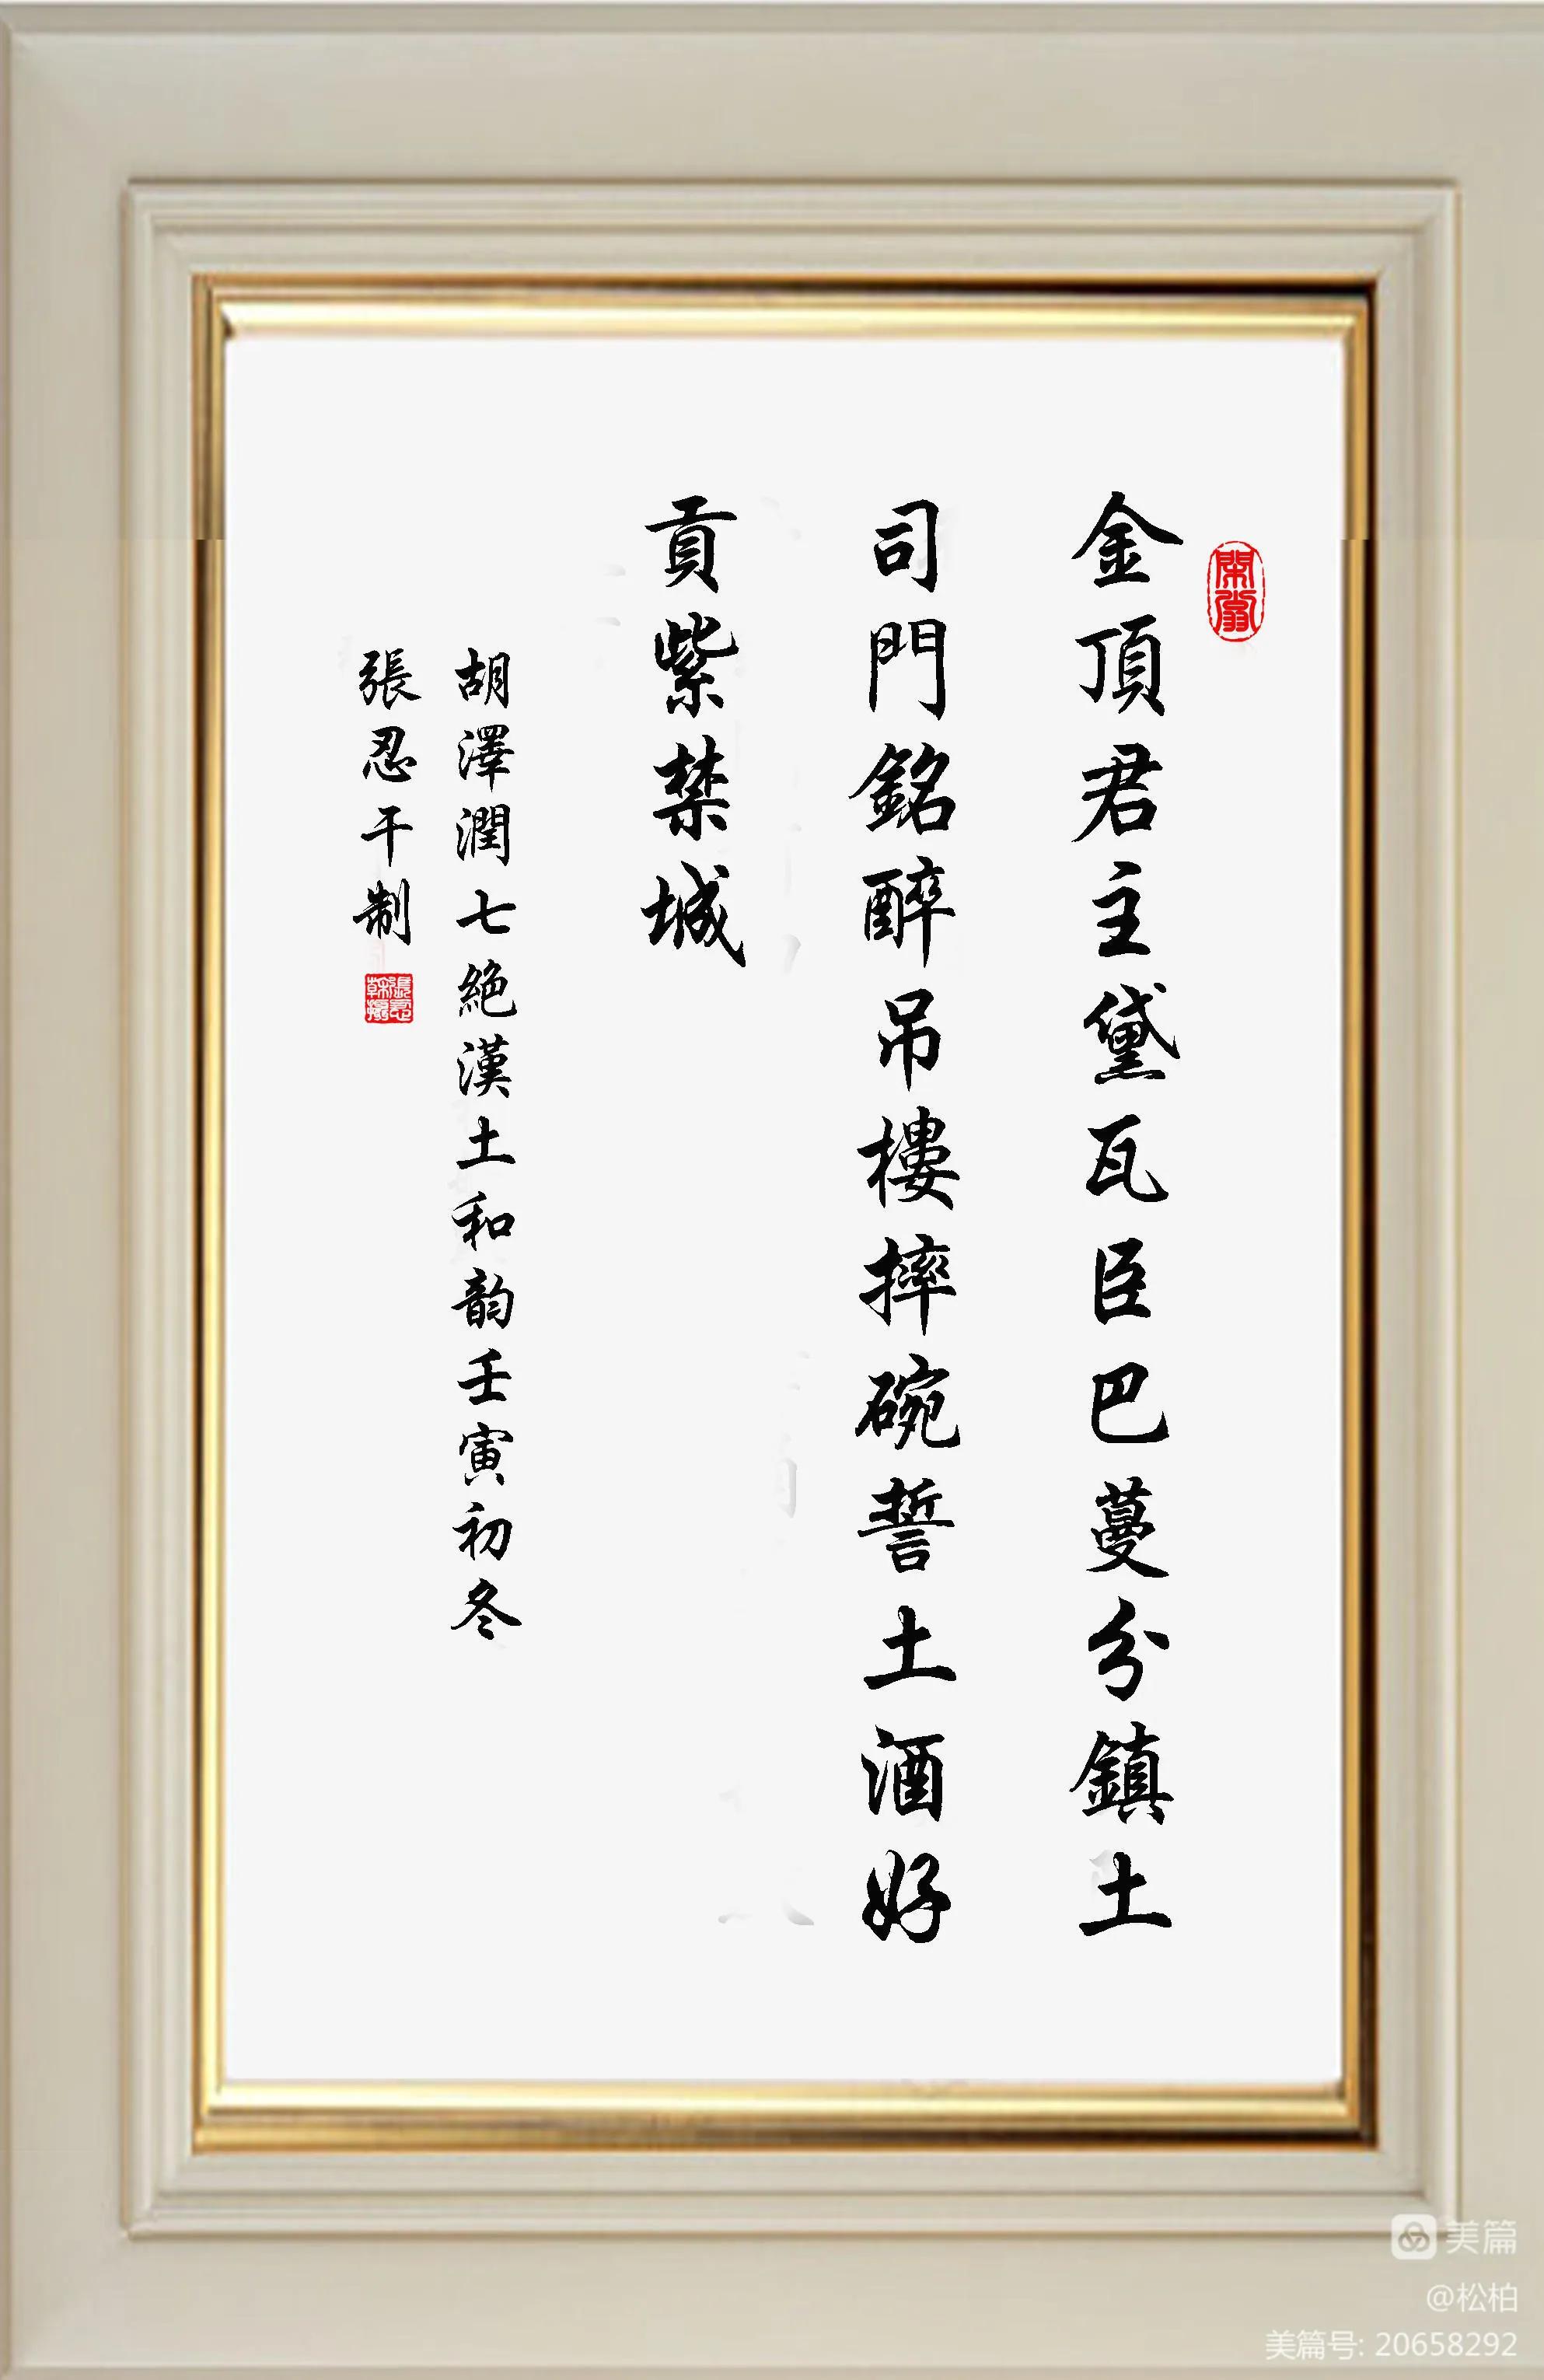 金頂君主黛瓦臣巴蔓分鎮土
司門銘醉吊樓摔碗誓土酒好
貢紫禁城
胡澤潤七絕漢土和韵壬寅初冬
張忍干制
美篇
@松柏
美篇号: 20658292